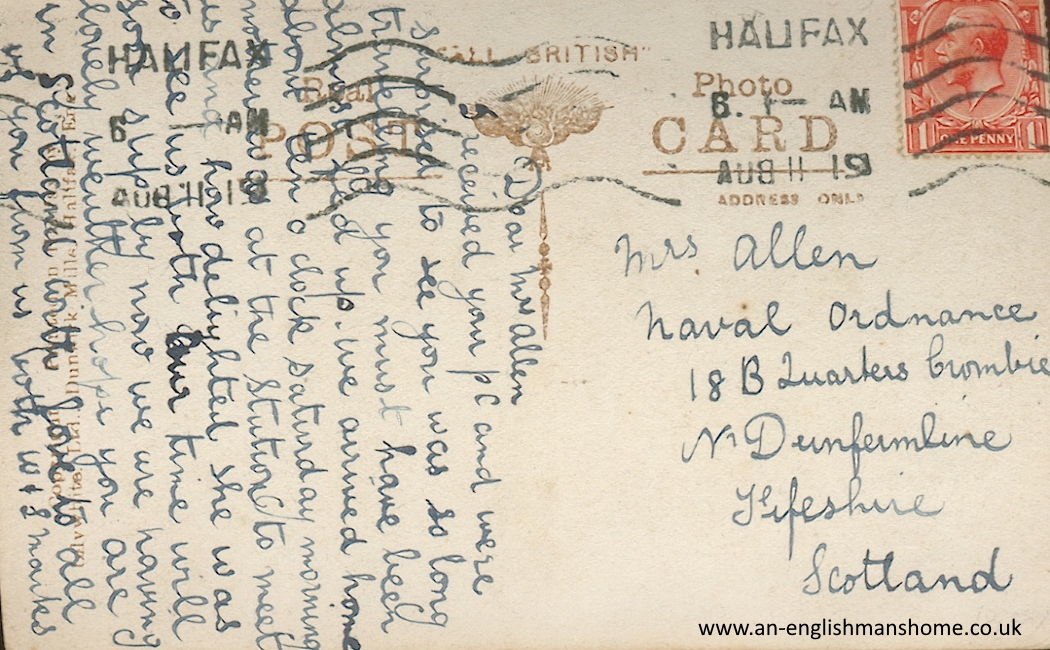 HALIFAX
6. 1 — AM
AUG 11 19
HALIFAX
6 — AM
AUG 11 19
ONE PENNY
"ALL BRITISH"
Real Photo
POST CARD
ADDRESS ONLY
Mrs Allen
Naval Ordnance
18 B Quarters Crombie
Nr Dunfermline
Fifeshire
Scotland
Dear Mrs Allen
I received your pc and were
suprised to see you was so long
you must have been
almost fed up. we arrived home
about ten o clock saturday morning
at the Stution to meet
us and how delighted she was
to see us both our time will
soon slip by now we are having
lovely weather hope you are
in Scotland with love to all
of you from us both W & Marks
Ltd., Dunkirk Mills, Halifax,
www.an-englishmanshome.co.uk